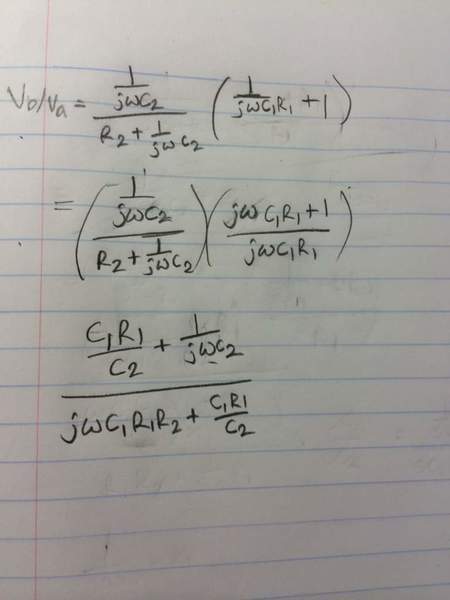 Vb/Va = (1/(jωC2))/(R2 + 1/(jωC2)) (1/(jωC1R1) + 1)
= ((1/(jωC2))/(R2 + 1/(jωC2))) ((jωC1R1 + 1)/(jωC1R1))
(C1R1/C2 + 1/(jωC2))/(jωC1R1R2 + C1R1/C2)